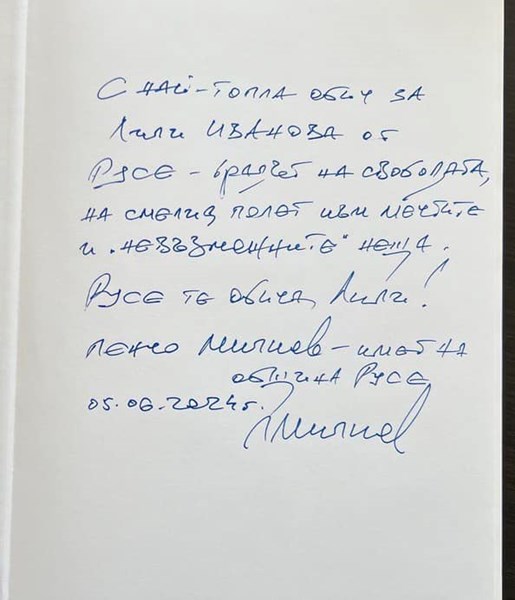 С най-топла обич за
Лили Иванова от
Русе - градът на свободата,
на смелия полет към мечтите
и "невъзможните" неща.
Русе те обича, Лили!
Пенчо Милков - кмет на
община Русе
05.06.2024г.